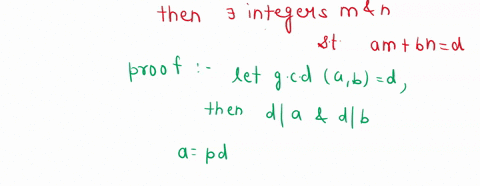 then ∃ integers m & n
st am + bn = d
proof :- let g.c.d (a,b) = d,
then d|a & d|b
a = pd